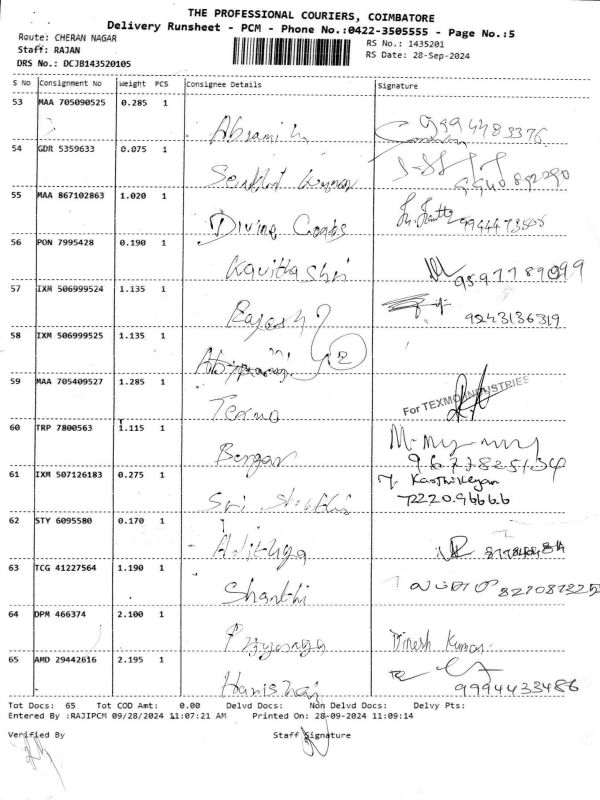 THE PROFESSIONAL COURIERS, COIMBATORE
Delivery Runsheet - PCM - Phone No.:0422-3505555 - Page No.:5
Route: CHERAN NAGAR
RS No.: 1435201
Staff: RAJAN
RS Date: 28-Sep-2024
DRS No.: DCJB143520105
S No Consignment No Weight PCS Consignee Details Signature
53 MAA 705090525 0.285 1
Abrami
9994783376
54 GDR 5359633 0.075 1
Kumar
55 MAA 867102863 1.020 1
Divine Coats
56 PON 7995428 0.190 1
Kavitha Shri
9597789099
57 IXM 506999524 1.135 1
Rajesh
9243136319
58 IXM 506999525 1.135 1
2
59 MAA 705409527 1.285 1
Texmo
For TEXMO INDUSTRIES
60 TRP 7800563 1.115 1
Bergar
9677825134
61 IXM 507126183 0.275 1
Sri
Karthikeyan
7220.96666
62 STY 6095580 0.170 1
Adithya
63 TCG 41227564 1.190 1
Shanthi
64 DPM 466374 2.100 1
Dinesh Kumar
65 AMD 29442616 2.195 1
Harish
9994433486
Tot Docs: 65 Tot COD Amt: 0.00 Delvd Docs: Non Delvd Docs: Delvy Pts:
Entered By :RAJIPCM 09/28/2024 11:07:21 AM Printed On: 28-09-2024 11:09:14
Verified By Staff Signature